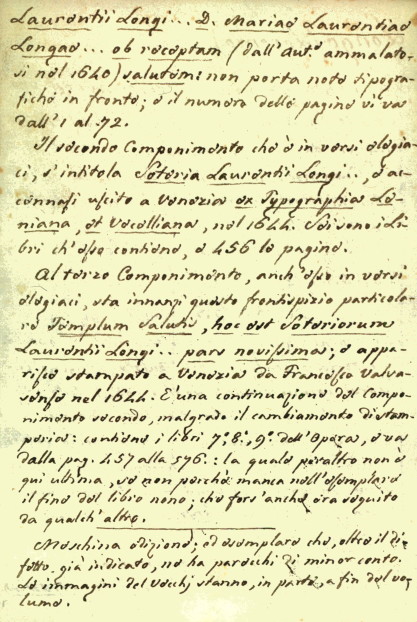 Laurentii Longi... D. Mariae Laurentiae
Longae... ob receptam (dall'Aut.e ammalato-
si nel 1640) salutem: non porta note tipogra-
fiche in fronte; e il numero delle pagine vi va
dall'1 al 72.
Il secondo Componimento che è in versi elegia-
ci, s'intitola Soteria Laurentii Longi.., e ac-
cennasi uscito a Venezia ex Typographia Le-
niana, et Vecelliana, nel 1644. Sei sono i Li-
bri ch'esso contiene, e 456 le pagine.
Al terzo Componimento, anch'esso in versi
elegiaci, sta innanzi questo frontispizio particola-
re Templum Salutis, hoc est Soteriorum
Laurentii Longi.. pars novissima; e appa-
risce stampato a Venezia da Francesco Valva-
sense nel 1644. E' una continuazione del Compo-
nimento secondo, malgrado il cambiamento di stam-
peria: contiene i libri 7.° 8.°, 9.° dell'Opera, e va
dalla pag. 457 alla 576.: la quale peraltro non è
qui ultima, se non perchè manca nell'esemplare
il fine del libro nono; che fors'anche era seguito
da qualch'altro.
Meschina edizione; ed esemplare che, oltre il di-
fetto già indicato, ne ha parecchi di minor conto.
Le immagini del Vecchj stanno, in parte, a fin del vo-
lume.